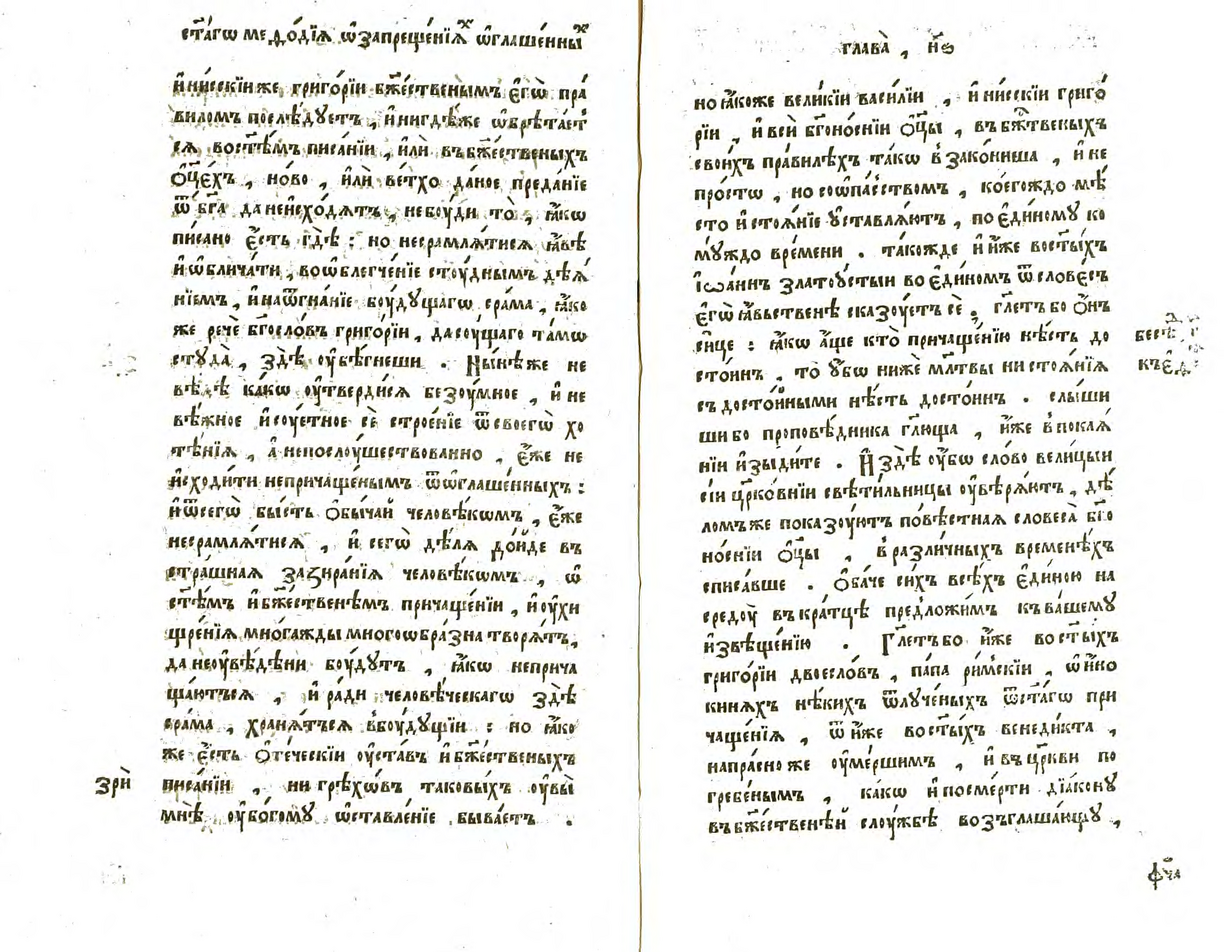 ст҃а́гѡ меѳо́дїѧ ѡ҆запреще́нїѧⷯ ѡ҆глаше́нныⷯ
и҆ни́сскїи же григо́рїи бж҃е́ственымъ є҆гѡ̀ пра́
виломъ послѣ́дуетъ , и҆нигдѣ́же ѡ҆брѣта́ет
сѧ востѣ́мъ писа́нїи , и҆лѝ въбж҃е́ственыхъ
ѻ҆ц҃е́хъ , но́во , и҆лѝ ве́тхо да́ное преда́нїе
ѿ бг҃а да неисхо́дѧтъ , не бо́уди то̀ , ꙗ҆́кѡ
пи́сано є҆́сть гдѣ̀ : но несрамлѧ́тисѧ ꙗ҆́вѣ
и҆ѡ҆блича́ти , воѡ҆блегче́нїе стоу́днымъ дѣѧ́
нїемъ , и҆наѿгна́нїе боу́дꙋщагѡ сра́ма , ꙗ҆́ко
же речѐ бг҃осло́въ григо́рїи , да соу́щаго та́мѡ
стꙋда̀ , здѣ̀ оу҆бѣ́гнеши . Ны́нѣже не
вѣ́дѣ ка́кѡ оу҆тверди́сѧ безоу́мное , и҆ не
вѣ́жное и҆соу́етное сѐ строе́нїе ѿ своегѡ̀ хо
тѣ́нїѧ , а҆ непослоу́шествованно , є҆́же не
и҆сходи́ти непричаще́нымъ ѿ ѡ҆глаше́нныхъ :
и҆ ѿ сегѡ̀ бы́сть ѻ҆бы́чаи человѣ́кѡмъ , є҆́же
несрамлѧ́тисѧ , и҆ сегѡ̀ дѣ́лѧ до́иде въ
стра́шнаѧ зазира́нїѧ человѣ́кѡмъ , ѡ҆
ст҃ѣ́мъ и҆ бж҃е́ственѣмъ причаще́нїи , и҆ оу҆хи
щре́нїѧ мно́гажды многоѡбра́зна творѧ́тъ ,
да неоу҆вѣ́дѣни боу́дꙋтъ , ꙗ҆́кѡ неприча
ща́ютъсѧ , и҆ ра́ди человѣ́ческагѡ здѣ̀
сра́ма , хранѧ́тъсѧ в҆боу́дꙋщїи : но ꙗ҆́ко
же є҆́сть ѻ҆те́ческїи оу҆ста́въ и҆ бж҃е́ственыхъ
писа́нїи , ни грѣхѡ́въ таковы́хъ оу҆вы̀
мнѣ̀ оу҆бо́гомꙋ ѡ҆ставле́нїе быва́етъ .
зрѝ
глава̀ , н҃ѳ
но ꙗ҆́коже вели́кїи васи́лїи , и҆ ни́сскїи григо́
рїи , и҆ всѝ бг҃оно́снїи ѻ҆ц҃ы̀ , въ бж҃твеныхъ
свои́хъ пра́вилѣхъ та́кѡ в҆зако́ниша , и҆ не
про́стѡ , но соѡ҆па́ствомъ , коегѡ́ждо мѣ́
сто и҆ стоѧ́нїе оу҆ставлѧ́ютъ , по є҆ди́номꙋ ко
мꙋ́ждо вре́мени . тако́жде и҆ и҆́же вост҃ы́хъ
і҆ѡа́ннъ златоу́стыи во є҆ди́номъ ѿ слове́съ
є҆гѡ̀ ꙗ҆́вьственѣ сказоу́етъ сѐ . гл҃етъ бо ѻ҆́нъ
си́це : ꙗ҆́кѡ а҆́ще кто̀ причаще́нїю нѣ́сть до
сто́инъ , то̀ оу҆́бѡ нижѐ мл҃твы ни стоѧ́нїѧ
съ досто́йными нѣ́сть досто́инъ . слы́ши
ши бо проповѣ́дника гл҃юща , и҆́же в҆покаѧ́
нїи и҆зыди́те . И҆ здѣ̀ оу҆́бѡ сло́во вели́цыи
сїи цр҃ко́внїи свѣти́льницы оу҆вѣрѧ́ютъ , дѣ́
ломъ же показоу́ютъ по́вѣстнаѧ словеса̀ бг҃о
но́снїи ѻ҆ц҃ы̀ , в҆разли́чныхъ времене́хъ
списа́вше . Ѻ҆ба́че си́хъ всѣ́хъ є҆ди́ною на
средоу̀ въкра́тцѣ предло́жимъ къ ва́шемꙋ
и҆звѣще́нїю . Гл҃етъ бо и҆́же во ст҃ы́хъ
григо́рїи двоесло́въ , па́па ри́мскїи , ѡ҆ и҆́но
кинѧхъ нѣ́кихъ ѿлꙋче́ныхъ ѿ ст҃а́гѡ при
чаще́нїѧ , ѿ и҆́же во ст҃ы́хъ венеди́кта ,
напра́сно же оу҆ме́ршимъ , и҆ въ цр҃кви по
гребе́нымъ , ка́кѡ и҆ посме́рти дїа́конꙋ
въ бж҃е́ственѣй слоу́жбѣ возъглаша́ющꙋ ,
ф҃ча